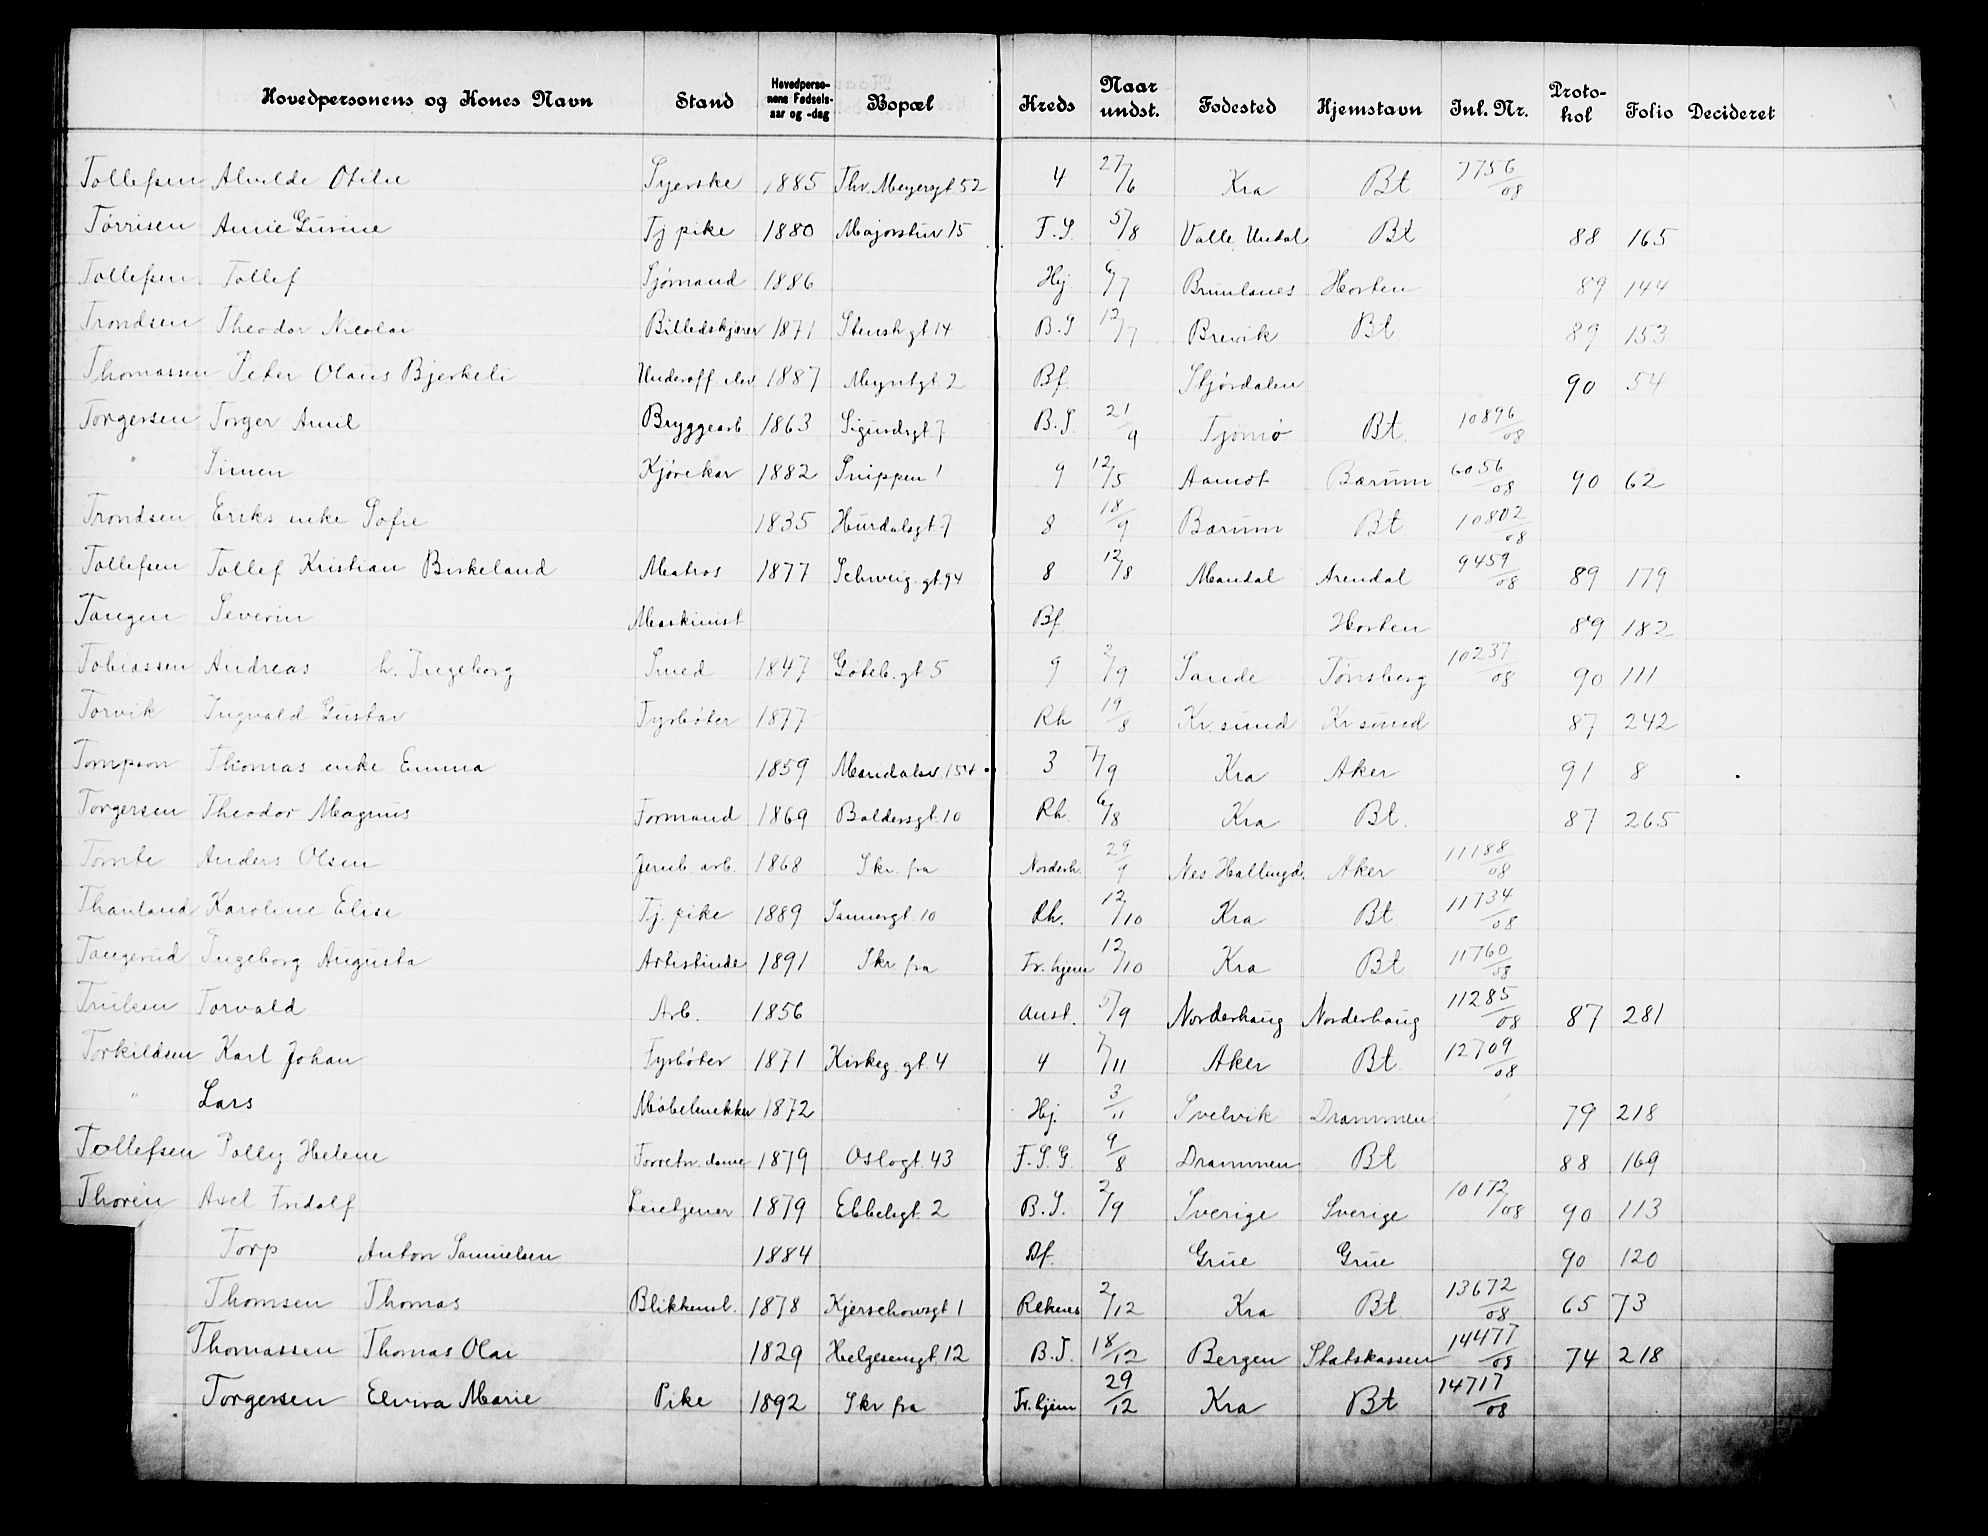 Hovedpersonens og Kones Navn | Stand | Hovedpersonens Fødselsaar og -dag | Bopæl | Kreds | Naar undst. | Fodested | Hjemstavn | Inl. Nr. | Protokol | Folio | Decideret
Tollefsen Alvilde Otilie | Syerske | 1885 | Thv. Meyersgt. 52 | 4 | 27/6 | Kra | Bt | 7756/08
Tørrisen Anne Gurine | Tj pike | 1880 | Majorstuv 15 | F.S. | 5/8 | Valle Undal | Bt | 88 | 165
Tollefsen Tollef | Sjømand | 1886 | Hj | 6/7 | Brunlanes | Horten | 89 | 144
Trondsen Theodor Nicolai | Billedskjærer | 1871 | Stensb gt 14 | B.S | 12/7 | Brevik | Bt | 89 | 153
Thomassen Peter Olaus Bjerkeli | Underoff. elev | 1887 | Myntgt. 2 | Bf. | Stjørdalen | 90 | 54
Torgersen Torger Amil | Bryggearb. | 1863 | Sigurdsgt. 7 | B.S. | 21/9 | Tjømø | Bt. | 10896/08
" Simen | Kjørekar | 1882 | Snippen 1 | 9 | 12/5 | Aamot | Bærum | 6056/08 | 90 | 62
Trondsen Eriks enke Sofie | 1835 | Hurdalsgt. 7 | 8 | 18/9 | Bærum | Bt | 10802/08
Tollefsen Tollef Kristian Birkeland | Matros | 1877 | Schweig. gt. 94 | 8 | 12/8 | Mandal | Arendal | 9459/08 | 89 | 179
Tangen Severin | Maskinist | Bf | Horten | 89 | 182
Tobiassen Andreas h. Ingeborg | Smed | 1847 | Gøteb. gt 5 | 9 | 2/9 | Sande | Tønsberg | 10237/08 | 90 | 111
Torvik Ingvald Gustav | Fyrbøter | 1877 | Rh | 19/8 | Kr. sund | Kr sund | 87 | 242
Tompson Thomas enke Emma | 1859 | Mandalsv. 154 | 3 | 7/9 | Kra | Aker | 91 | 8
Torgersen Theodor Magnus | Formand | 1869 | Baldersgt. 10 | Rh. | 6/8 | Kra | Bt. | 87 | 265
Tomte Anders Olsen | Jernb. arb. | 1868 | Skr. fra | Norderh. | 29/9 | Nes Hallingd. | Aker | 11188/08
Thauland Karoline Elise | Tj. pike | 1889 | Sannergt. 10 | Rh. | 12/10 | Kra | Bt. | 11734/08
Tangerud Ingeborg Augusta | Artistinde | 1891 | Skr fra | Fr. hjem | 12/10 | Kra | Bt | 11760/08
Trulsen Torvald | Arb. | 1856 | Anst. | 5/9 | Norderhaug | Norderhaug | 11285/08 | 87 | 281
Torkildsen Karl Johan | Fyrbøter | 1871 | Kirkeg. gt. 4 | 4 | 7/11 | Aker | Bt | 12709/08
" Lars | Møbelsnekker | 1872 | Hj. | 3/11 | Svelvik | Drammen | 79 | 218
Tollefsen Polly Helene | Forretn. dame | 1879 | Oslogt. 43 | F.S.G. | 9/8 | Drammen | Bt | 88 | 169
Thorèn Axel Fridolf | Leietjener | 1879 | Ebbelsgt. 2 | B.S. | 2/9 | Sverige | Sverige | 10172/08 | 90 | 113
Torp Anton Samuelsen | 1884 | Bf. | Grue | Grue | 90 | 120
Thomsen Thomas | Blikkensl. | 1878 | Kjerschowsgt 1 | Rekens | 2/12 | Kra | Bt. | 13672/08 | 65 | 73
Thomassen Thomas Olai | 1829 | Helgesensgt. 12 | B.S. | 18/12 | Bergen | Statskassen | 14477/08 | 74 | 218
Torgersen Elvira Marie | Pike | 1892 | Skr fra | Fr. hjem | 29/12 | Kra | Bt | 14717/08